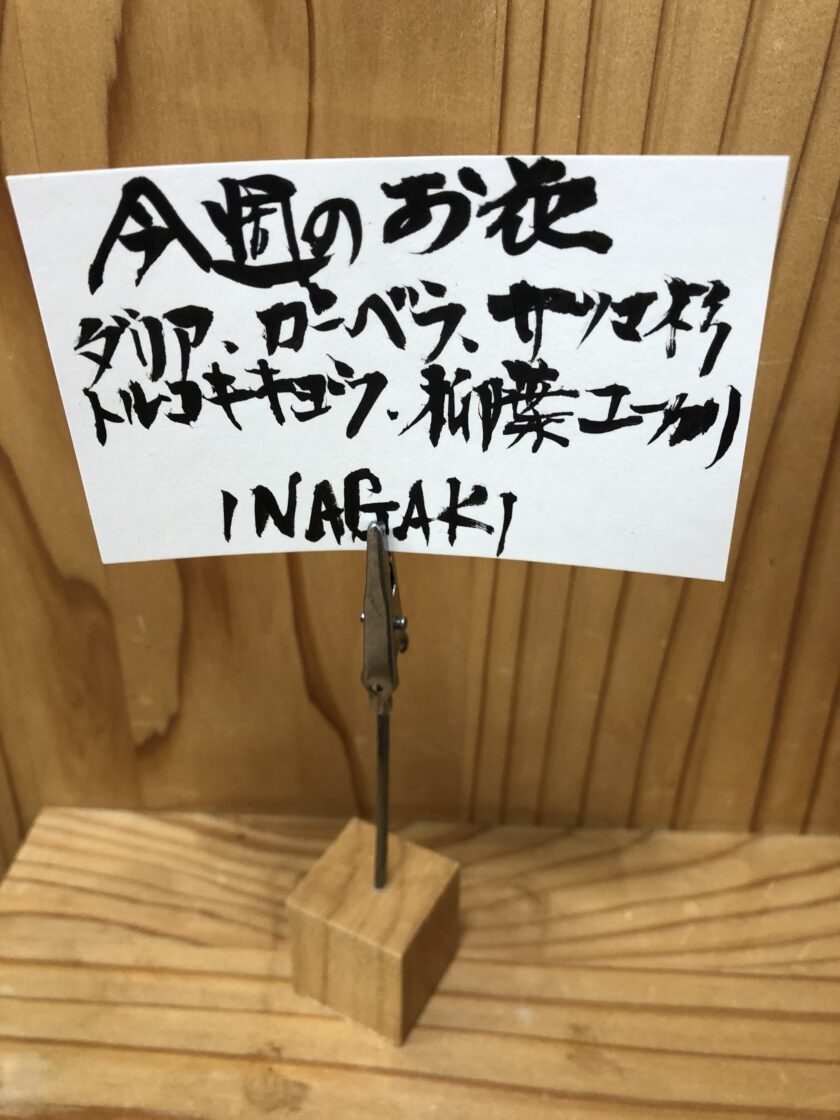 今週のお花
ダリア、ガーベラ、サツマ杉
トルコキキョウ、柳葉ユーカリ
INAGAKI